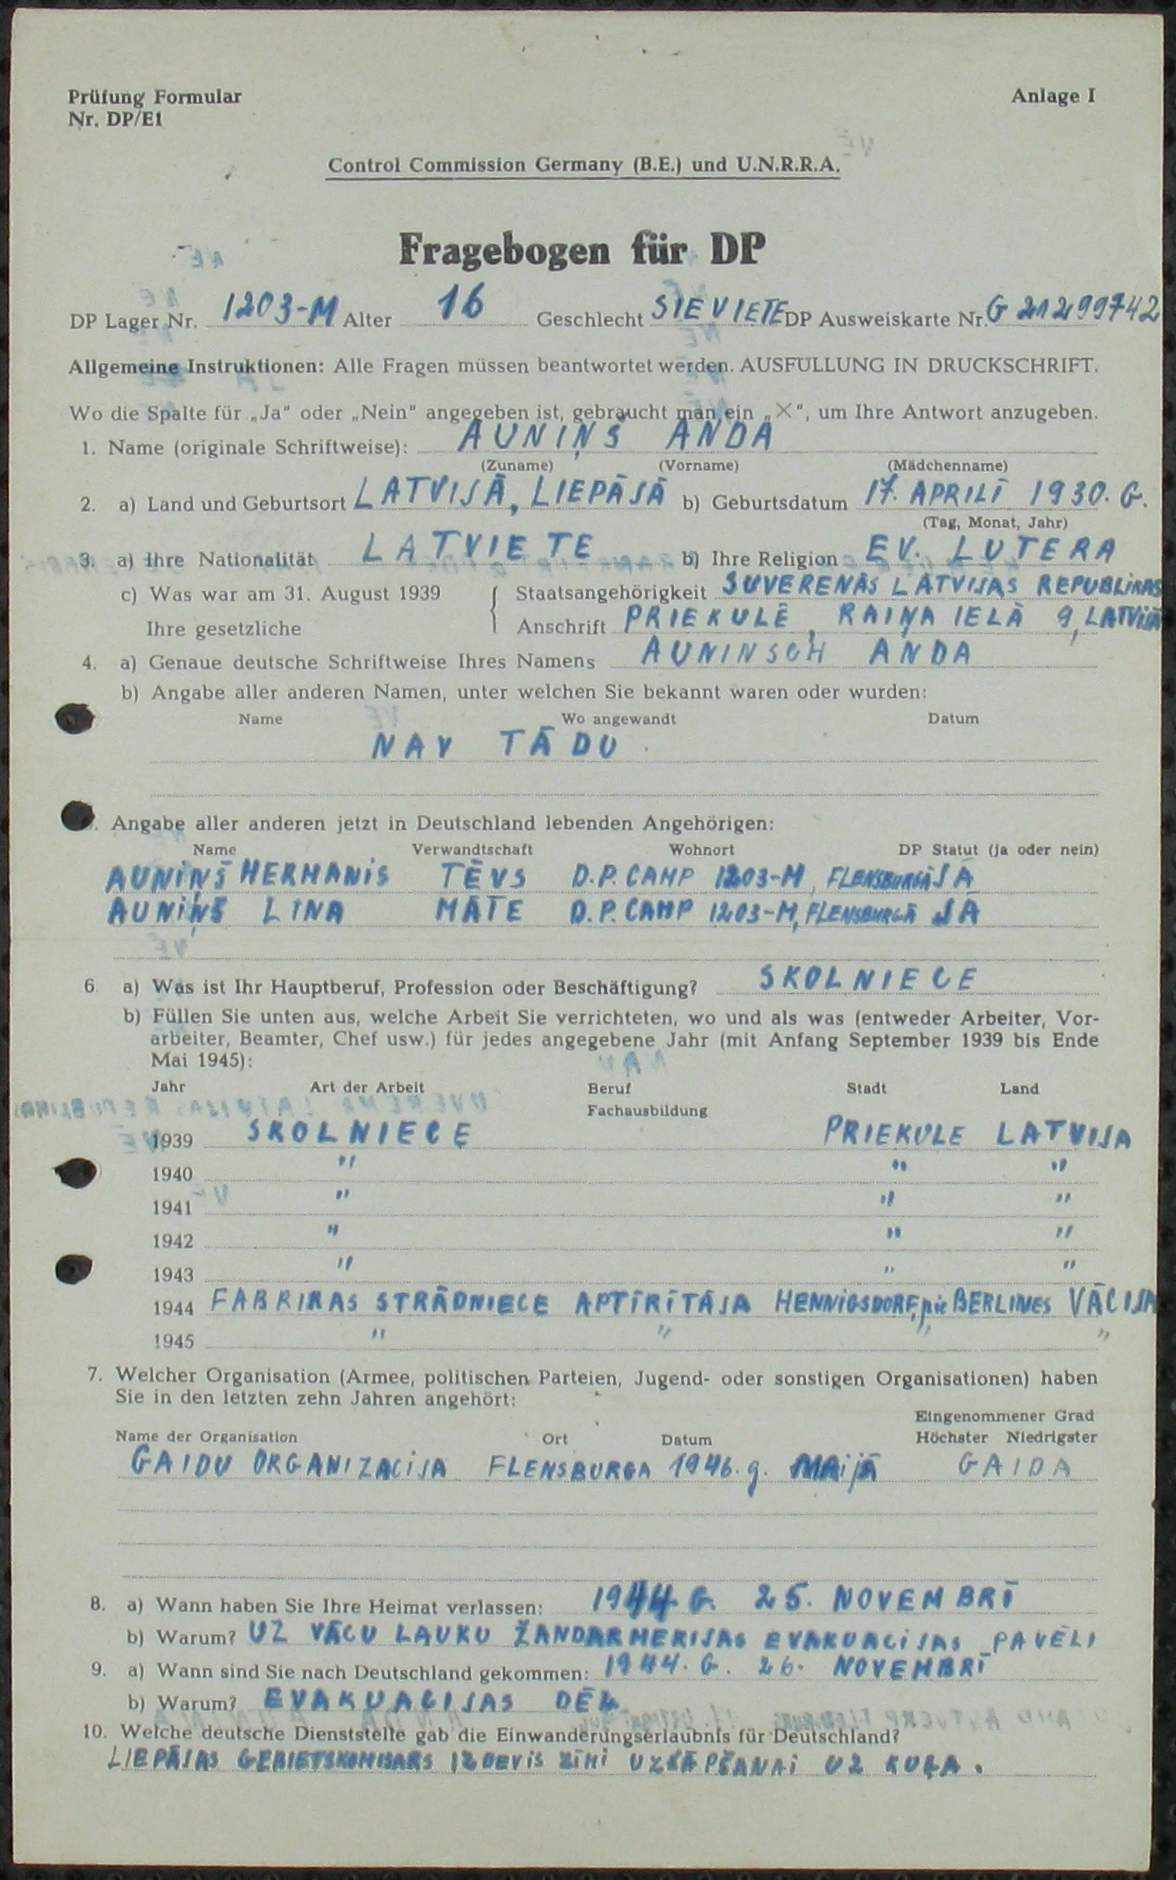 Prüfung Formular
Nr. DP/E1
Anlage I
Control Commission Germany (B.E.) und U.N.R.R.A.
Fragebogen für DP
DP Lager Nr. 1203-M Alter 16 Geschlecht SIEVIETE DP Ausweiskarte Nr. G 21299742
Allgemeine Instruktionen: Alle Fragen müssen beantwortet werden. AUSFÜLLUNG IN DRUCKSCHRIFT.
Wo die Spalte für „Ja" oder „Nein" angegeben ist, gebraucht man ein „X", um Ihre Antwort anzugeben.
1. Name (originale Schriftweise): AUNIŅŠ ANDA
(Zuname) (Vorname) (Mädchenname)
2. a) Land und Geburtsort LATVIJĀ, LIEPĀJĀ b) Geburtsdatum 17. APRILĪ 1930. G.
(Tag, Monat, Jahr)
3. a) Ihre Nationalität LATVIETE b) Ihre Religion EV. LUTERA
c) Was war am 31. August 1939 Staatsangehörigkeit SUVERENĀS LATVIJAS REPUBLIKAS
Ihre gesetzliche Anschrift PRIEKULĒ, RAIŅA IELĀ 9, LATVIJĀ
4. a) Genaue deutsche Schriftweise Ihres Namens AUNINSCH ANDA
b) Angabe aller anderen Namen, unter welchen Sie bekannt waren oder wurden:
Name Wo angewandt Datum
NAV TĀDU
Angabe aller anderen jetzt in Deutschland lebenden Angehörigen:
Name Verwandtschaft Wohnort DP Statut (ja oder nein)
AUNIŅŠ HERMANIS TĒVS D.P. CAMP 1203-M, FLENSBURGĀ JĀ
AUNIŅŠ LINA MĀTE D.P. CAMP 1203-M, FLENSBURGĀ JĀ
6. a) Was ist Ihr Hauptberuf, Profession oder Beschäftigung? SKOLNIECE
b) Füllen Sie unten aus, welche Arbeit Sie verrichteten, wo und als was (entweder Arbeiter, Vor-
arbeiter, Beamter, Chef usw.) für jedes angegebene Jahr (mit Anfang September 1939 bis Ende
Mai 1945):
Jahr Art der Arbeit Beruf Stadt Land
Fachausbildung
1939 SKOLNIECE PRIEKULE LATVIJA
1940 " " "
1941 " " "
1942 " " "
1943 " " "
1944 FABRIKAS STRĀDNIECE APTĪRĪTĀJA HENNIGSDORF, pie BERLINES VĀCIJA
1945 " " " "
7. Welcher Organisation (Armee, politischen Parteien, Jugend- oder sonstigen Organisationen) haben
Sie in den letzten zehn Jahren angehört:
Eingenommener Grad
Name der Organisation Ort Datum Höchster Niedrigster
GAIDU ORGANIZACIJA FLENSBURGA 1946. g. MAijĀ GAIDA
8. a) Wann haben Sie Ihre Heimat verlassen: 1944. G. 25. NOVEMBRĪ
b) Warum? UZ VĀCU LAUKU ŽANDARMERIJAS EVAKUACIJAS PAVĒLI
9. a) Wann sind Sie nach Deutschland gekommen: 1944. G. 26. NOVEMBRĪ
b) Warum? EVAKUACIJAS DĒĻ
10. Welche deutsche Dienststelle gab die Einwanderungserlaubnis für Deutschland?
LIEPĀJAS GEBIETSKOMISARS IZDEVIS ZĪMI UZKĀPŠANAI UZ KUĢA.